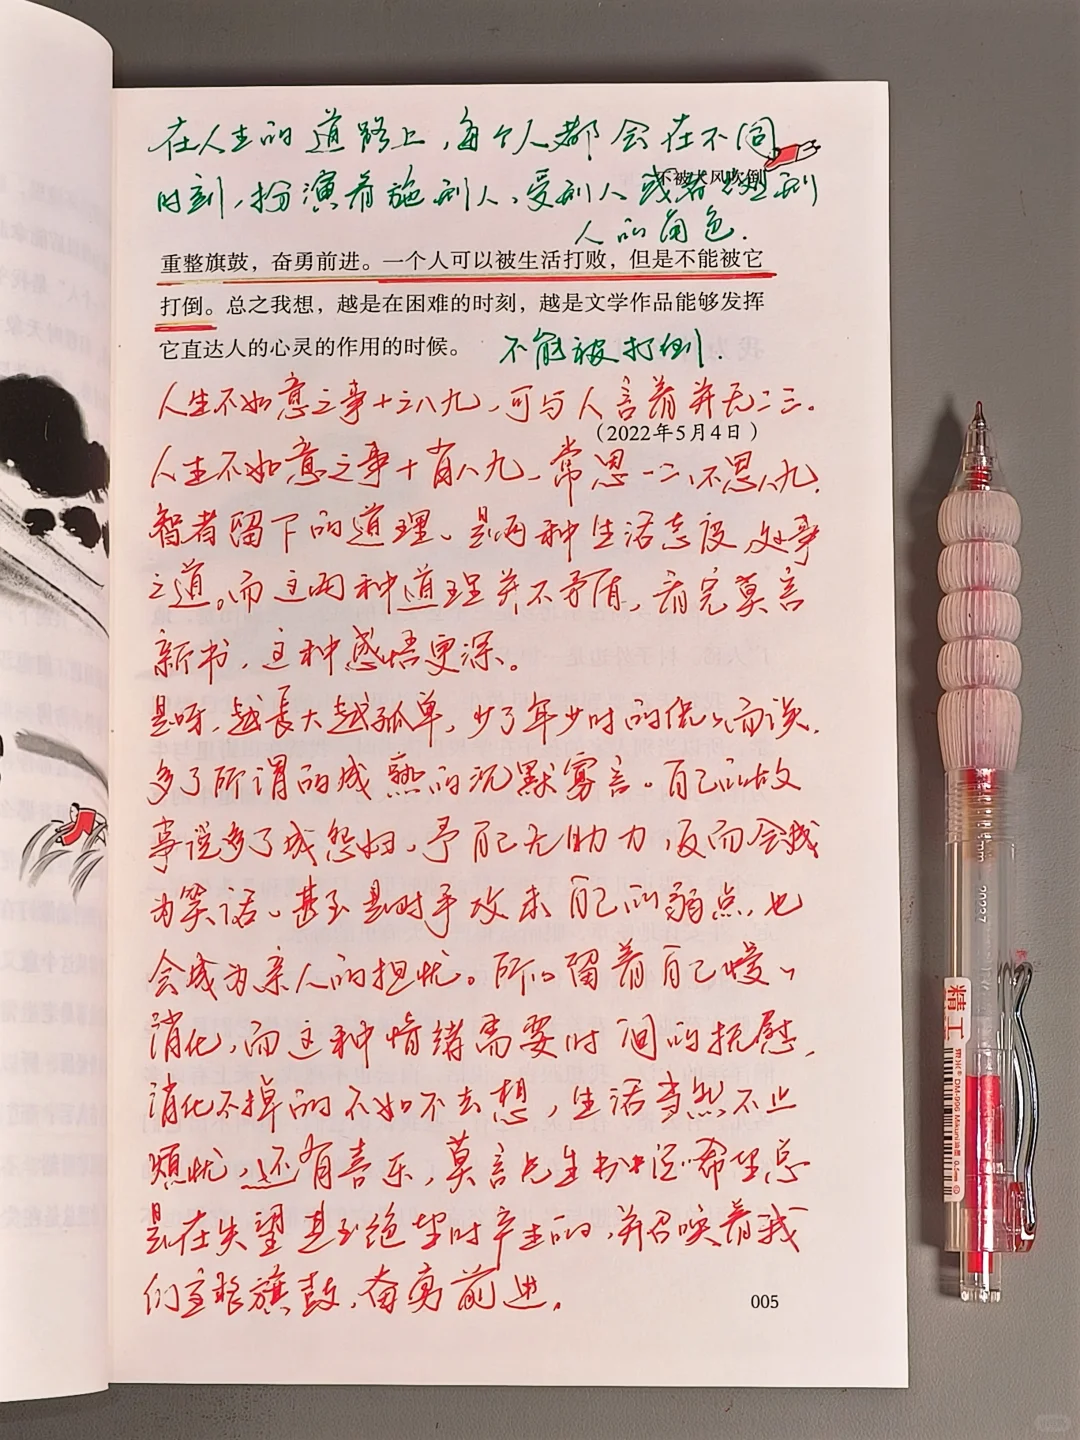 在人生的道路上，每个人都会在不同
不被大风吹倒
时刻，扮演着施别人、受别人或者 别
人的角色.
重整旗鼓，奋勇前进。一个人可以被生活打败，但是不能被它
打倒。总之我想，越是在困难的时刻，越是文学作品能够发挥
它直达人的心灵的作用的时候。
不能被打倒.
人生不如意之事十之八九，可与人言者并无二三.
（2022年5月4日）
人生不如意之事十有八九，常思一二，不思八九.
智者留下的道理、是两种生活态度、处事
之道。而这两种道理并不矛盾，看完莫言
新书，这种感悟更深。
是呀，越长大越孤单，少了年少时的侃侃而谈，
多了所谓的成熟的沉默寡言。自己的故
事说多了成怨妇，予自己无助力，反而会成
为笑话、甚至是对手攻击自己的弱点，也
会成为亲人的担忧。所以留着自己慢慢
消化，而这种情绪需要时间的抚慰，
消化不掉的不如不去想，生活当然不止
烦忧，还有喜乐，莫言先生书中说:希望总
是在失望甚至绝望时产生的，并召唤着我
们重整旗鼓，奋勇前进。
005
精工
DM-996
0.5mm